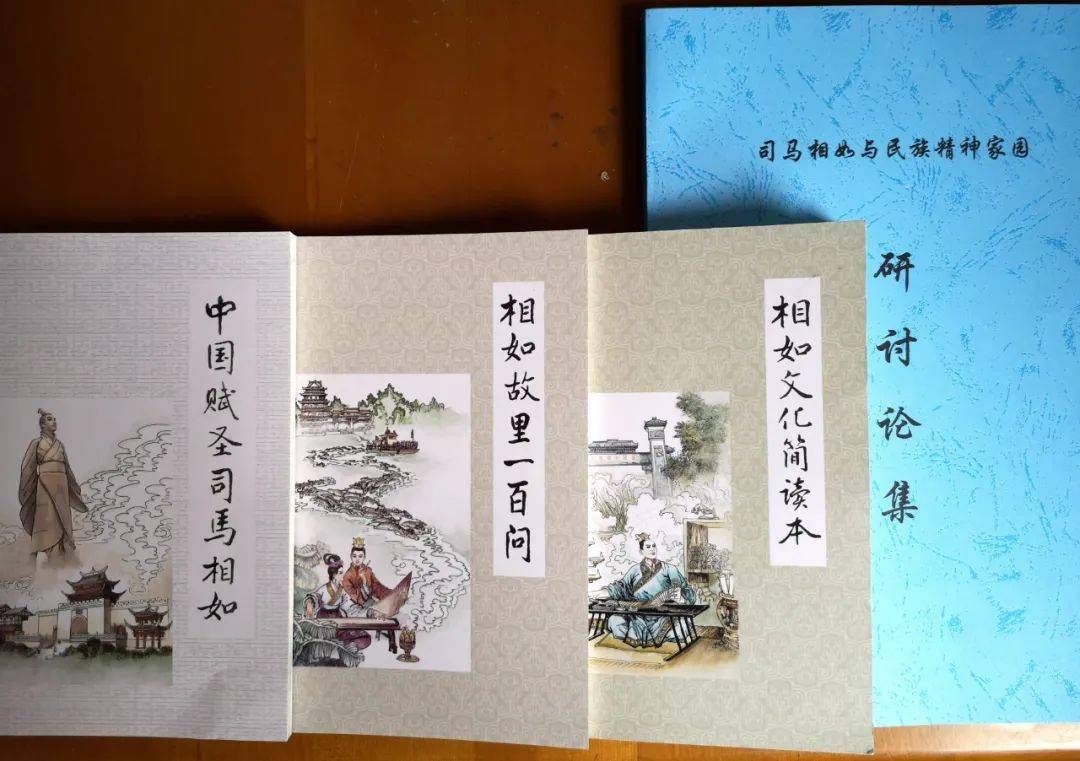 中国赋圣司马相如
相如故里一百问
相如文化简读本
司马相如与民族精神家园
研讨论集